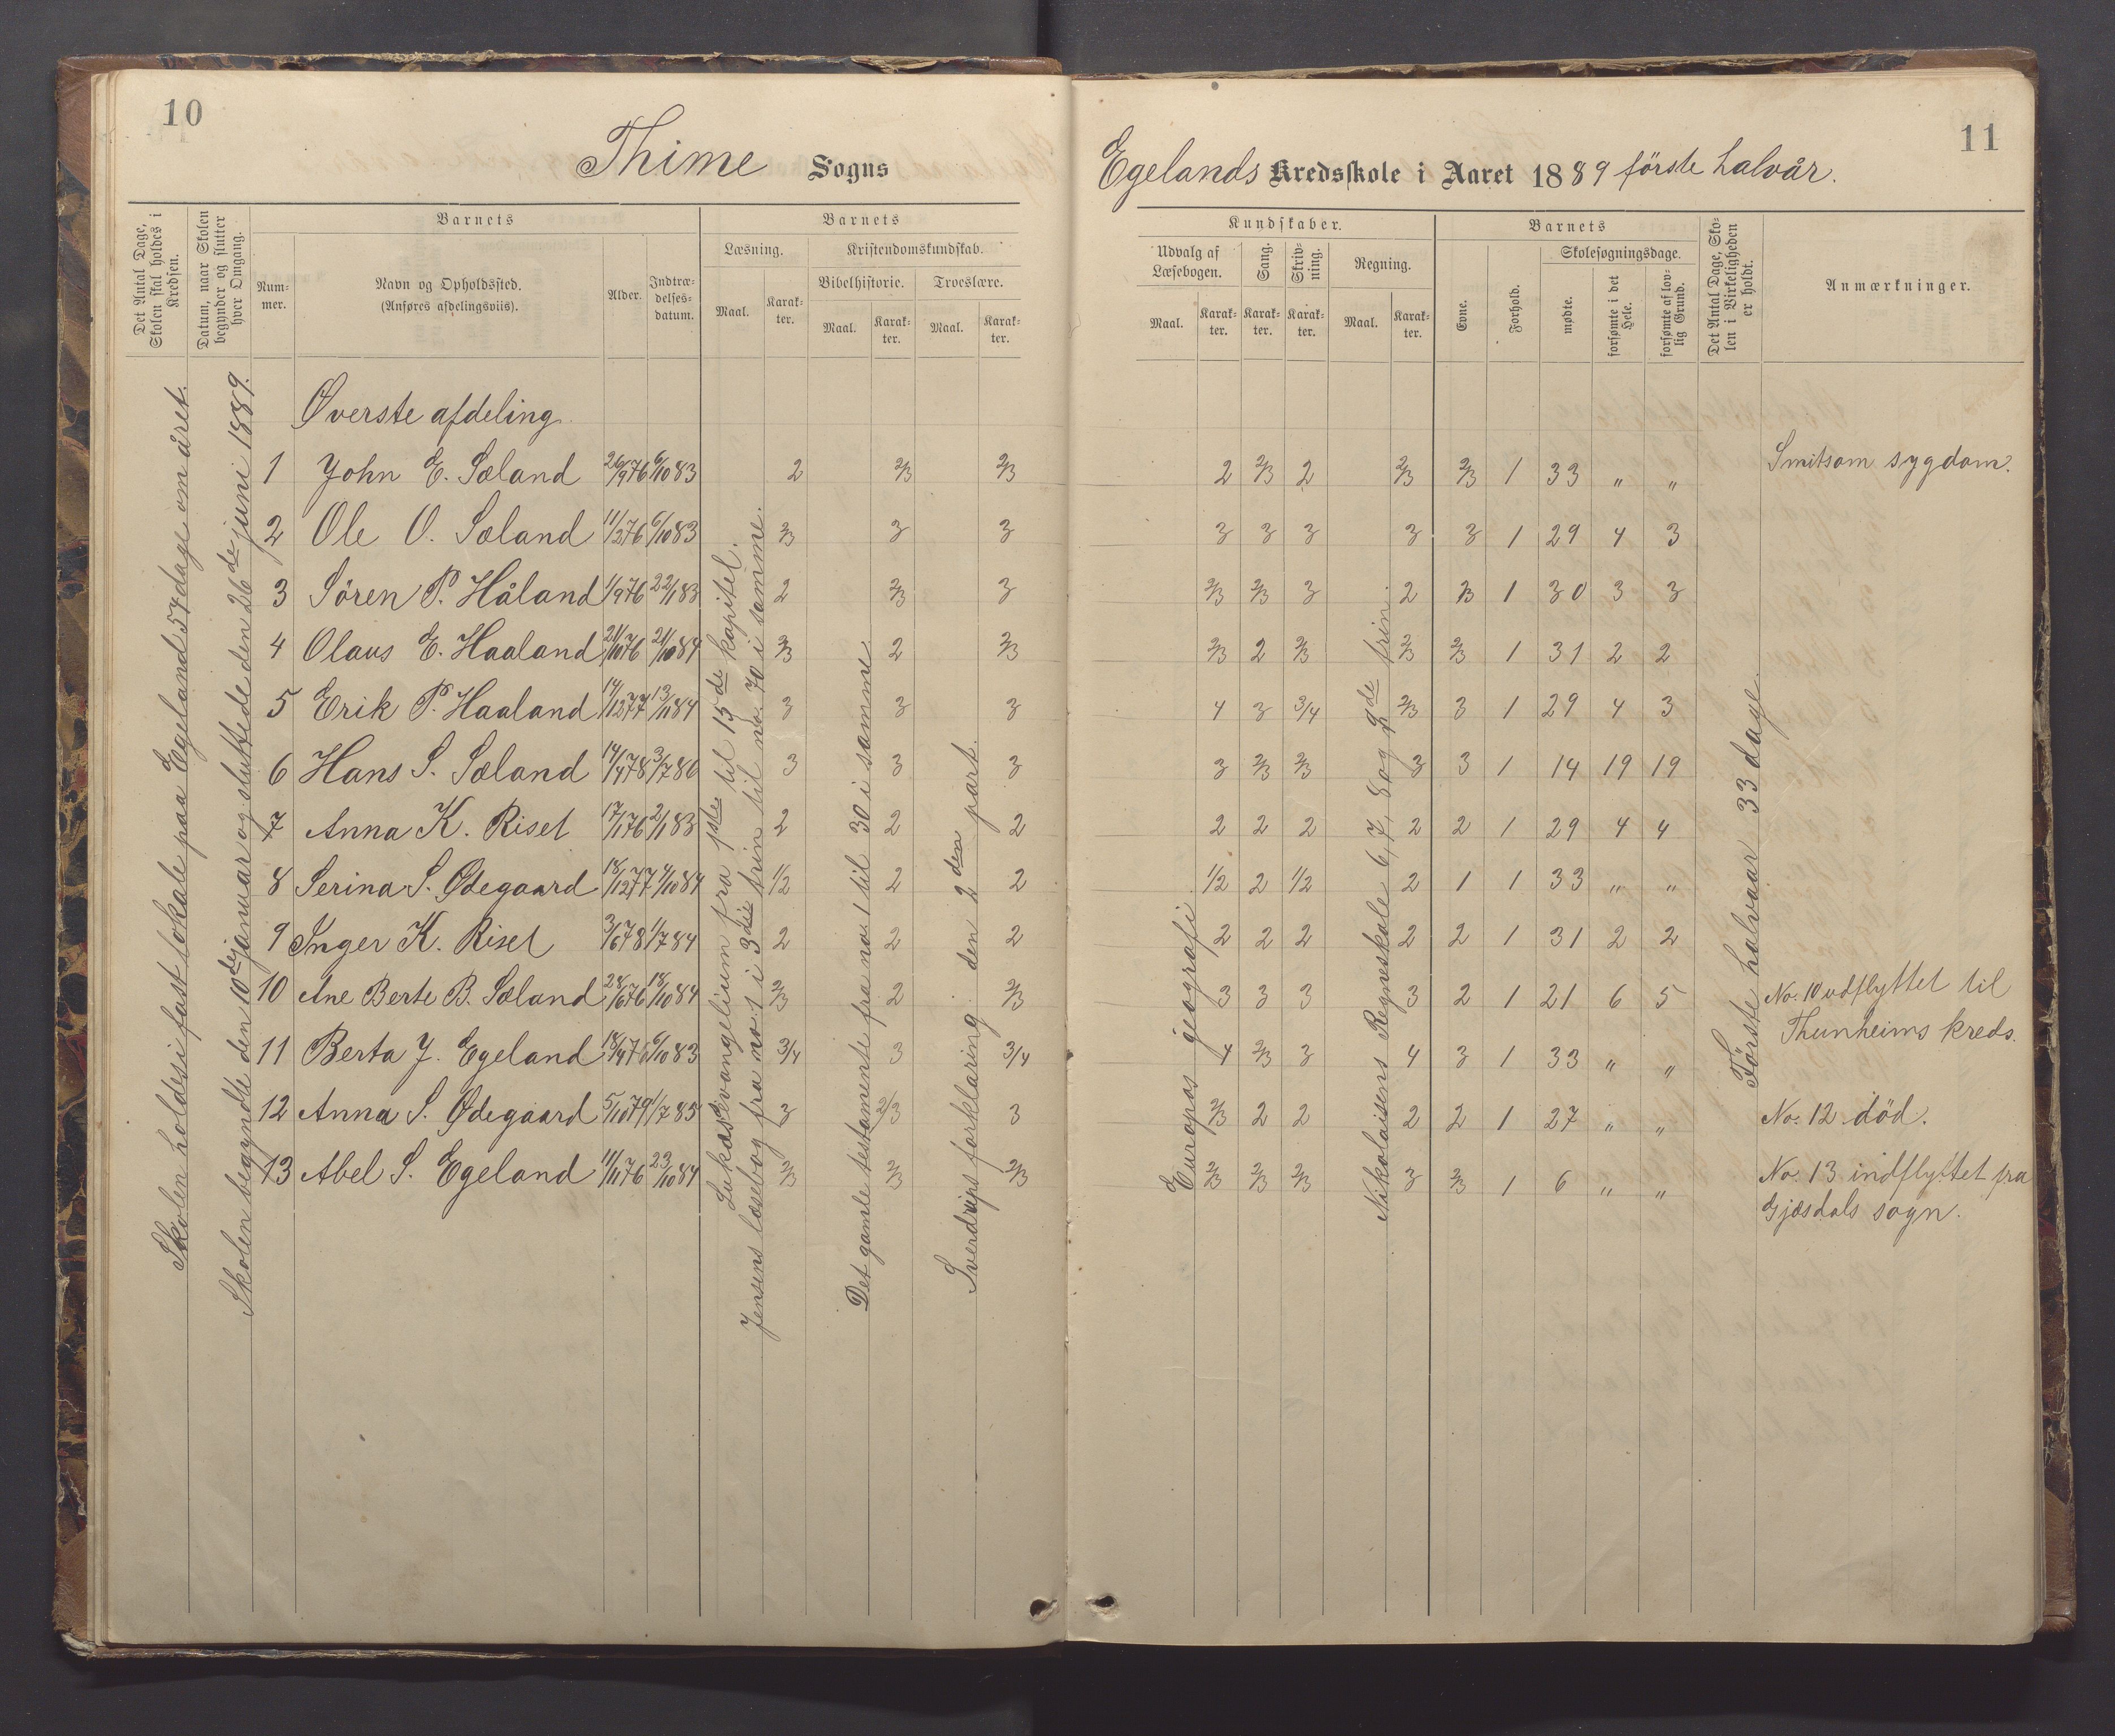 10
Thime Sogns
Det Antal Dage, Skolen skal holdes i Kredsen.
Datum, naar Skolen begynder og slutter hver Omgang.
Barnets
Nummer.
Navn og Opholdssted.
(Anføres afdelingsviis).
Alder.
Indtrædelsesdatum.
Barnets
Læsning.
Maal.
Karakter.
Kristendomskundskab.
Bibelhistorie.
Maal.
Karakter.
Troeslære.
Maal.
Karakter.
Skolen holdes i fast lokale paa Egeland 57 dage om året.
Skolen begyndte den 10de januar og sluttede den 26de juni 1889.
Øverste afdeling
1 John E. Sæland 26/9 76 6/10 83 2 2/3 2/3
2 Ole O. Sæland 11/2 76 6/10 83 2/3 3 3
3 Sören P. Håland 1/9 76 22/1 83 2 2/3 3
4 Olaus E. Haaland 21/10 76 21/10 84 2/3 2 2/3
5 Erik P. Haaland 14/12 77 13/11 84 3 3 3
6 Hans S. Sæland 14/4 78 3/7 86 3 3 3
7 Anna K. Risel 17/1 76 2/1 83 2 2 2
8 Serina S. Ødegaard 18/12 77 4/10 84 1/2 2 2
9 Inger K. Risel 3/6 78 1/7 84 2 2 2
10 Ane Berte B. Sæland 28/6 76 18/10 84 2/3 2 2/3
11 Berta J. Egeland 18/4 76 6/10 83 3/4 3 3/4
12 Anna S. Ødegaard 5/10 79 1/7 85 3 2/3 3
13 Abel S. Egeland 11/11 76 23/10 84 2/3 2/3 2/3
Lukas evangelium fra 1ste til 15de kapitel.
Jensens læsebog fra no. 1 i 3die trin til no. 70 i samme.
Det gamle testamente fra no. 1 til 30 i samme
Sverdrups forklaring den 2den part.
11
Egelands Kredsskole i Aaret 1889 förste halvår.
Kundskaber.
Udvalg af Læsebogen.
Maal.
Karakter.
Sang.
Karakter.
Skrivning.
Karakter.
Regning.
Maal.
Karakter.
Barnets
Evne.
Forhold.
Skolesøgningsdage.
mødte.
forsømte i det Hele.
forsømte af lovlig Grund.
Det Antal Dage, Skolen i Virkeligheden er holdt.
Anmærkninger.
2 2/3 2 2/3 2/3 1 33 " " Smitsom sygdom.
3 3 3 3 3 1 29 4 3
2/3 2/3 3 2 2/3 1 30 3 3
2/3 2 2/3 2/3 2/3 1 31 2 2
4 3 3/4 2/3 3 1 29 4 3
3 2/3 2/3 3 3 1 14 19 19
2 2 2 2 2 1 29 4 4
1/2 2 1/2 2 1 1 33 " "
2 2 2 2 2 1 31 2 2
3 3 3 3 2 1 21 6 5 No. 10 udflyttet til
Thunheims kreds.
4 2/3 3 4 3 1 33 " "
2/3 2 2 2 2 1 27 " " No. 12 död.
2/3 2/3 2/3 3 2/3 1 6 " " No. 13 indflyttet fra
Gjæsdals sogn.
Europas geografi.
Nikolaisens Regneskole 6, 7, 8 og 9de trin.
Förste halvaar 33 dage.